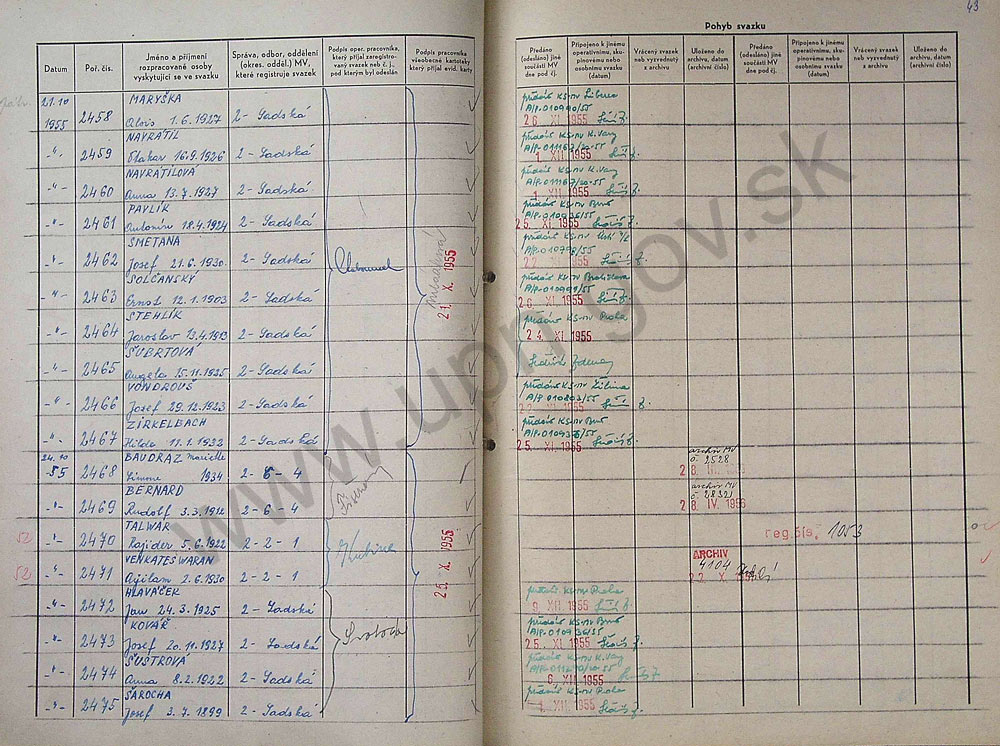 43
Pohyb svazku
Datum
Poř. čís.
Jméno a příjmení
rozpracované osoby
vyskytující se ve svazku
Správa, odbor, oddělení
(okres. odděl.) MV,
které registruje svazek
Podpis oper. pracovníka,
který přijal zaregistro-
vaný svazek neb č. j.,
pod kterým byl odeslán
Podpis pracovníka
všeobecné kartotéky
který přijal evid. karty
Předáno
(odesláno) jiné
součásti MV
dne pod čj.
Připojeno k jinému
operativnímu, sku-
pinovému nebo
osobnímu svazku
(datum)
Vrácený svazek
neb vyzvednutý
z archivu
Uloženo do
archivu, datum
(archivní číslo)
Předáno
(odesláno) jiné
součásti MV
dne pod čj.
Připojeno k jinému
operativnímu, sku-
pinovému nebo
osobnímu svazku
(datum)
Vrácený svazek
neb vyzvednutý
z archivu
Uloženo do
archivu, datum
(archivní číslo)
21.10 MARYŠKA
1955 2458 Alois 1.6.1927 2- Sadská
předáno KS-MV Liberec
A/P-010990/55
26. XI. 1955
NAVRÁTIL
-"- 2459 Otakar 16.9.1926 2- Sadská
předáno KS-MV K. Vary
A/P-011167/20-55
1. XII. 1955
NAVRÁTILOVÁ
-"- 2460 Anna 13.7.1927 2- Sadská
předáno KS-MV K. Vary
A/P-011167/20-55
1. XII. 1955
PAVLÍK
-"- 2461 Antonín 18.4.1924 2- Sadská
předáno KS-MV Brno
A/P-010936/55
25. XI. 1955
SMETANA
-"- 2462 Josef 21.6.1930 2- Sadská
předáno KS-MV Ústí n/L
A/P-010796/55
22. XI. 1955
21. X. 1955
ŠOLČANSKÝ
-"- 2463 Ernst 12.1.1903 2- Sadská
předáno KS-MV Bratislava
A/P-010991/55
26. XI. 1955
STEHLÍK
-"- 2464 Jaroslav 13.4.1913 2- Sadská
předáno KS-MV Praha
24. XI. 1955
ŠUBRTOVÁ
-"- 2465 Angela 15.11.1925 2- Sadská
VONDROUŠ
-"- 2466 Josef 29.12.1923 2- Sadská
předáno KS-MV Žilina
A/P 010803/55
22. XI. 1955
ZIRKELBACH
-"- 2467 Hilda 11.1.1932 2- Sadská
předáno KS-MV Brno
A/P-010936/55
25. XI. 1955
24.10 BAUDRAZ Marielle
55 2468 Simone 1934 2-6-4
archiv MV
č. 2528
BERNARD
-"- 2469 Rudolf 3.3.1914 2-6-4
archiv MV
č. 28321
28. IV. 1956
TALWAR
52 -"- 2470 Rajider 5.6.1922 2-2-1
Kučera
25. X. 1955
reg. čís. 1053
VENKATEŠWARAN
52 -"- 2471 Ajilam 2.6.1930 2-2-1
ARCHIV
4104
HLAVÁČEK
-"- 2472 Jan 24.3.1925 2- Sadská
předáno KS-MV Praha
9. XII. 1955
KOVÁŘ
-"- 2473 Josef 20.11.1927 2- Sadská
Svoboda
předáno KS-MV Brno
A/P-010936/55
25. XI. 1955
ŠUSTROVÁ
-"- 2474 Anna 8.2.1922 2- Sadská
předáno KS-MV K. Vary
6. XII. 1955
ŠAROCHA
-"- 2475 Josef 3.7.1899 2- Sadská
předáno KS-MV Praha
1. XII. 1955
www.upn.gov.sk